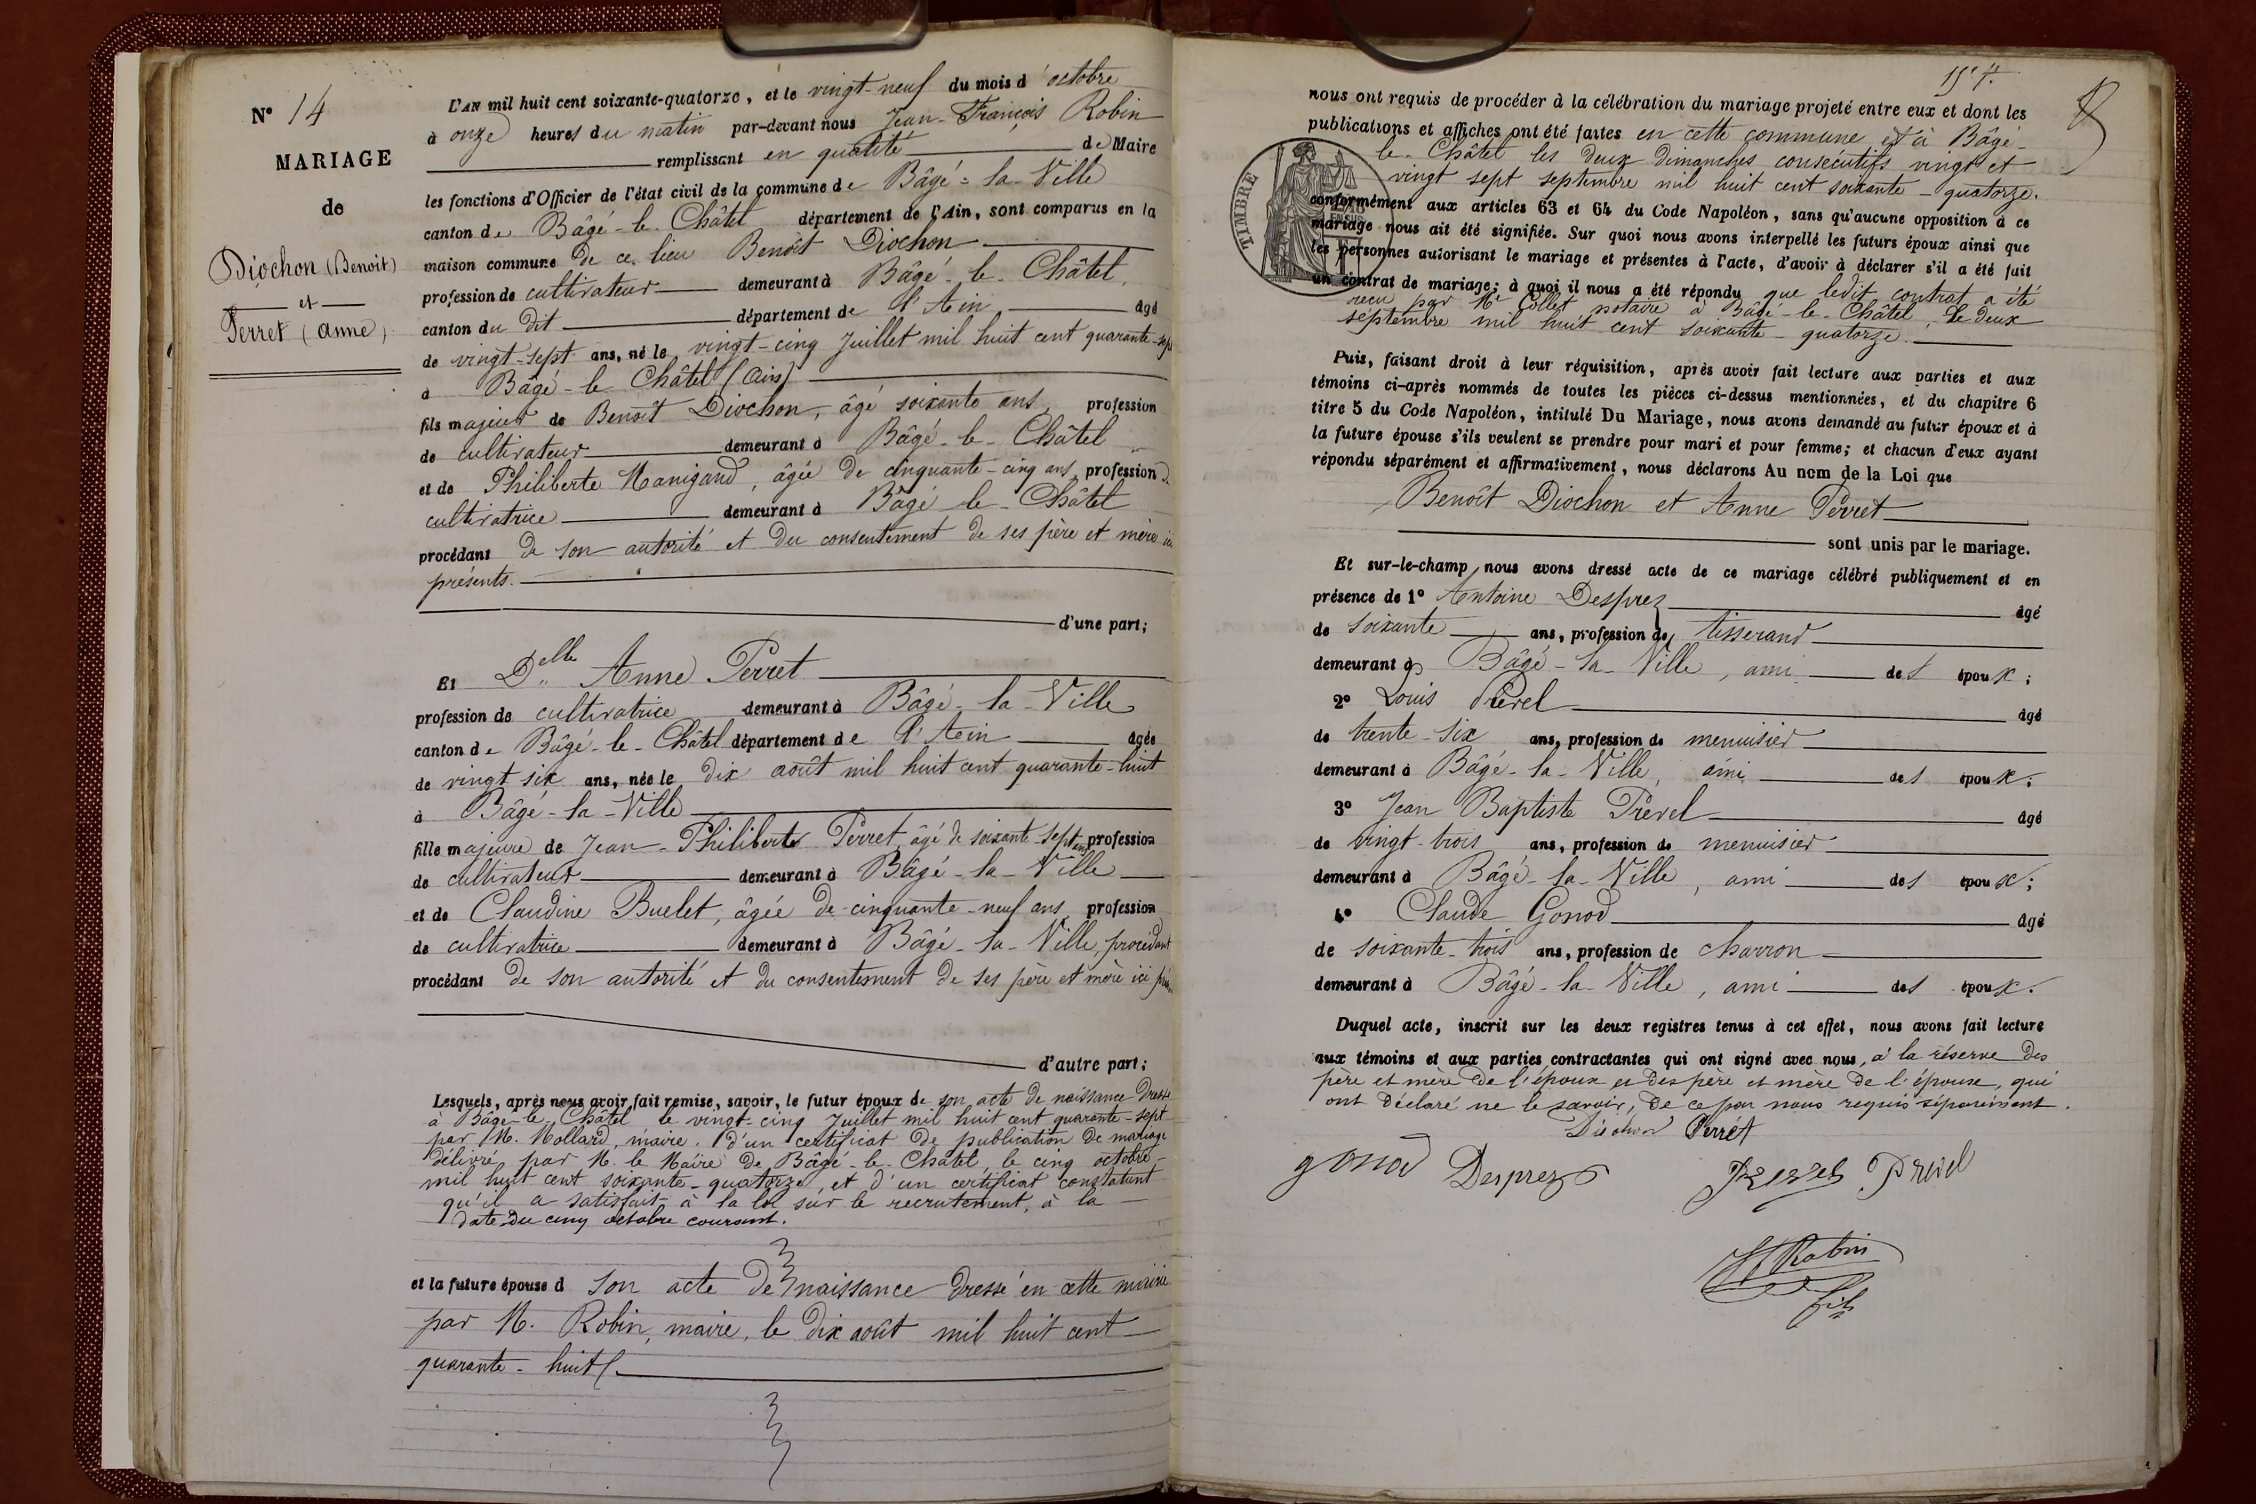 N° 14
MARIAGE
de
Diochon (Benoit)
et
Perret (Anne)
L'AN mil huit cent soixante-quatorze, et le vingt-neuf du mois d'octobre
à onze heures du matin par-devant nous Jean-François Robin
remplissant en qualité de Maire
les fonctions d'Officier de l'état civil de la commune de Bâgé-la-Ville
canton de Bâgé-le-Châtel département de l'Ain, sont comparus en la
maison commune de ce lieu Benoît Diochon
profession de cultivateur demeurant à Bâgé-le-Châtel,
canton du dit département de l'Ain âgé
de vingt-sept ans, né le vingt-cinq Juillet mil huit cent quarante-sept
à Bâgé-le-Châtel (Ain)
fils majeur de Benoît Diochon, âgé soixante ans, profession
de cultivateur demeurant à Bâgé-le-Châtel
et de Philiberte Manigand, âgée de cinquante-cinq ans, profession de
cultivatrice demeurant à Bâgé-le-Châtel
procédant de son autorité et du consentement de ses père et mère ici
présents.
d'une part;
Et Delle Anne Perret
profession de cultivatrice demeurant à Bâgé-la-Ville
canton de Bâgé-le-Châtel département de l'Ain âgée
de vingt six ans, née le dix août mil huit cent quarante-huit
à Bâgé-la-Ville
fille majeure de Jean-Philibert Perret, âgé de soixante-sept ans profession
de cultivateur demeurant à Bâgé-la-Ville
et de Claudine Buelet, âgée de cinquante-neuf ans, profession
de cultivatrice demeurant à Bâgé-la-Ville, procédant
procédant de son autorité et du consentement de ses père et mère ici
d'autre part;
Lesquels, après nous avoir fait remise, savoir, le futur époux de son acte de naissance dressé
à Bâgé-le-Châtel le vingt-cinq Juillet mil huit cent quarante-sept
par M. Mollard, maire. d'un certificat de publication de mariage
délivré par M. le Maire de Bâgé-le-Châtel, le cinq octobre
mil huit cent soixante-quatorze et d'un certificat constatant
qu'il a satisfait à la loi sur le recrutement, à la
date du cinq octobre courant.
et la future épouse d son acte de naissance dressé en cette mairie
par M. Robin, maire, le dix août mil huit cent
quarante-huit
nous ont requis de procéder à la célébration du mariage projeté entre eux et dont les
publications et affiches ont été faites en cette commune et à Bâgé-
le-Châtel les deux dimanches consécutifs vingt et
vingt sept septembre mil huit cent soixante-quatorze.
TIMBRE
conformément aux articles 63 et 64 du Code Napoléon, sans qu'aucune opposition à ce
mariage nous ait été signifiée. Sur quoi nous avons interpellé les futurs époux ainsi que
les personnes autorisant le mariage et présentes à l'acte, d'avoir à déclarer s'il a été fait
un contrat de mariage; à quoi il nous a été répondu que ledit contrat a été
reçu par Me Collet notaire à Bâgé-le-Châtel, le deux
septembre mil huit cent soixante-quatorze.
Puis, faisant droit à leur réquisition, après avoir fait lecture aux parties et aux
témoins ci-après nommés de toutes les pièces ci-dessus mentionnées, et du chapitre 6
titre 5 du Code Napoléon, intitulé Du Mariage, nous avons demandé au futur époux et à
la future épouse s'ils veulent se prendre pour mari et pour femme; et chacun d'eux ayant
répondu séparément et affirmativement, nous déclarons Au nom de la Loi que
Benoît Diochon et Anne Perret
sont unis par le mariage.
Et sur-le-champ nous avons dressé acte de ce mariage célébré publiquement et en
présence de 1° Antoine Desprez âgé
de soixante ans, profession de tisserand
demeurant à Bâgé-la-Ville, ami des époux;
2° Louis Prével âgé
de trente-six ans, profession de menuisier
demeurant à Bâgé-la-Ville, ami des époux;
3° Jean Baptiste Prével âgé
de vingt-trois ans, profession de menuisier
demeurant à Bâgé-la-Ville, ami des époux;
4° Claude Gonod âgé
de soixante-trois ans, profession de charron
demeurant à Bâgé-la-Ville, ami des époux.
Duquel acte, inscrit sur les deux registres tenus à cet effet, nous avons fait lecture
aux témoins et aux parties contractantes qui ont signé avec nous, à la réserve des
père et mère de l'époux et des père et mère de l'épouse, qui
ont déclaré ne le savoir, de ce par nous requis séparément.
Diochon Perret
gonod Desprez Prevel Prevel
Robin
fils